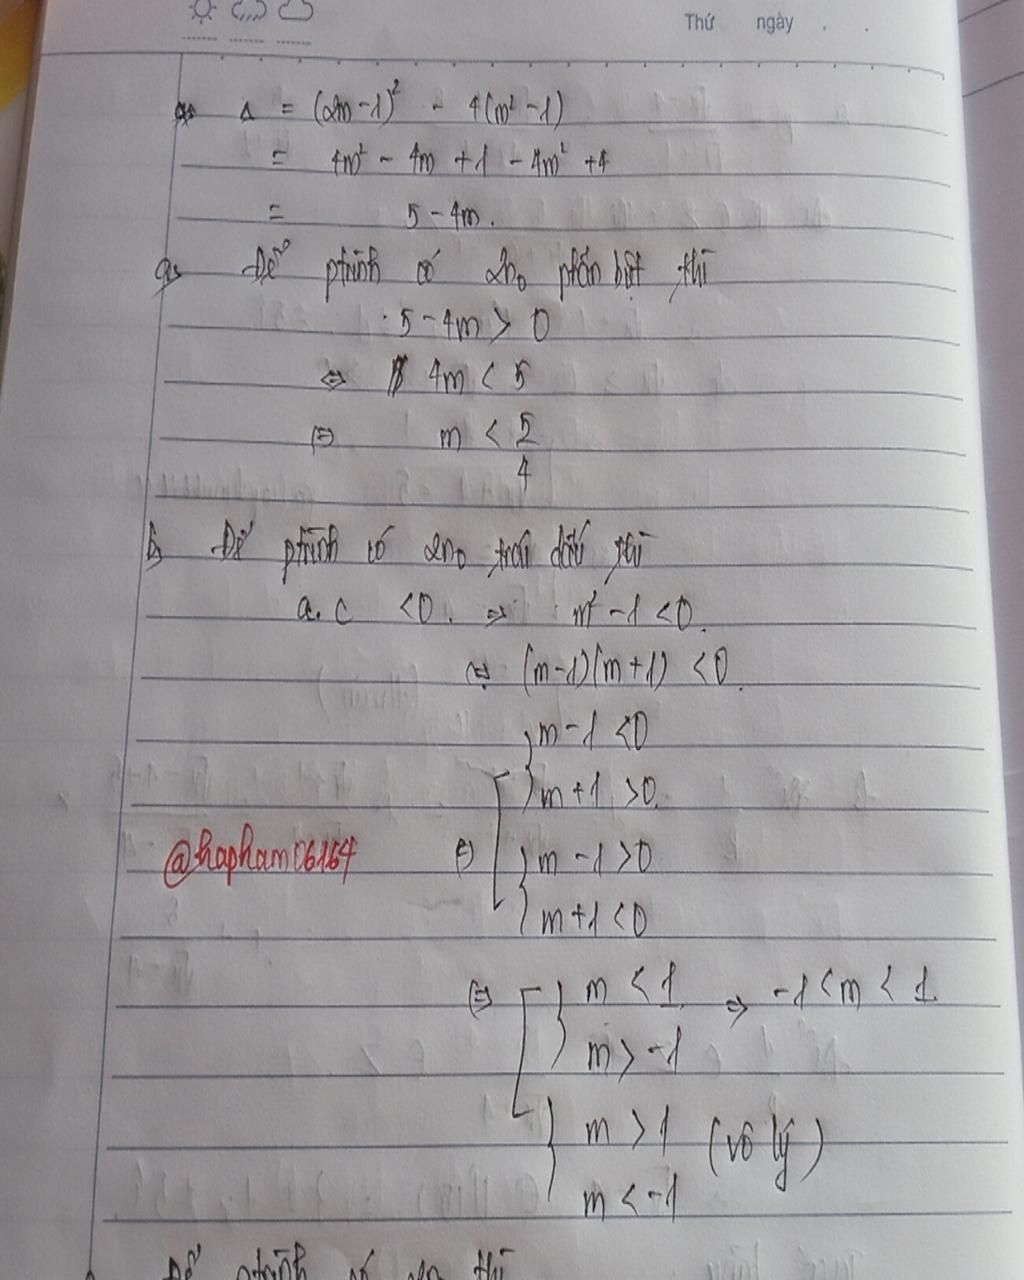 Thứ ngày . .
Δ = (2m-1)² - 4(m²-1)
= 4m² - 4m + 1 - 4m² + 4
= 5 - 4m.
a, Để ptrình có 2n₀ phân biệt thì
5 - 4m > 0
⇔ 4m < 5
⇔ m < 5/4
b, Để ptrình có 2n₀ trái dấu thì
a.c < 0. ⇒ m² - 1 < 0.
⇔ (m-1)(m+1) < 0.
m - 1 < 0
m + 1 > 0.
@hapham06164 ⇔ m - 1 > 0
m + 1 < 0
⇔ m < 1 ⇒ -1 < m < 1
m > -1
m > 1 (vô lý)
m < -1
Để ptrình có 2n₀ thì